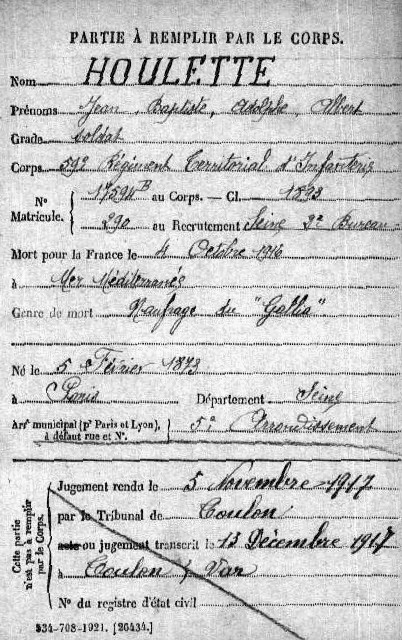 PARTIE À REMPLIR PAR LE CORPS.
Nom HOULETTE
Prénoms Jean, Baptiste, Adolphe, Albert
Grade Soldat
Corps 59e Régiment Territorial d'Infanterie
N° Matricule. 17594B au Corps. — Cl. 1893
290 au Recrutement Seine 2e Bureau
Mort pour la France le 4 Octobre 1916
à Mer Méditerranée
Genre de mort Naufrage du "Gallia"
Né le 5 Février 1873
à Paris Département Seine
Arr† municipal (p† Paris et Lyon), à défaut rue et N°. 5e Arrondissement
Cette partie n'est pas à remplir par le Corps.
Jugement rendu le 5 Novembre 1917
par le Tribunal de Toulon
acte ou jugement transcrit le 13 Décembre 1917
à Toulon / Var
N° du registre d'état civil
534-708-1921. [26434.]